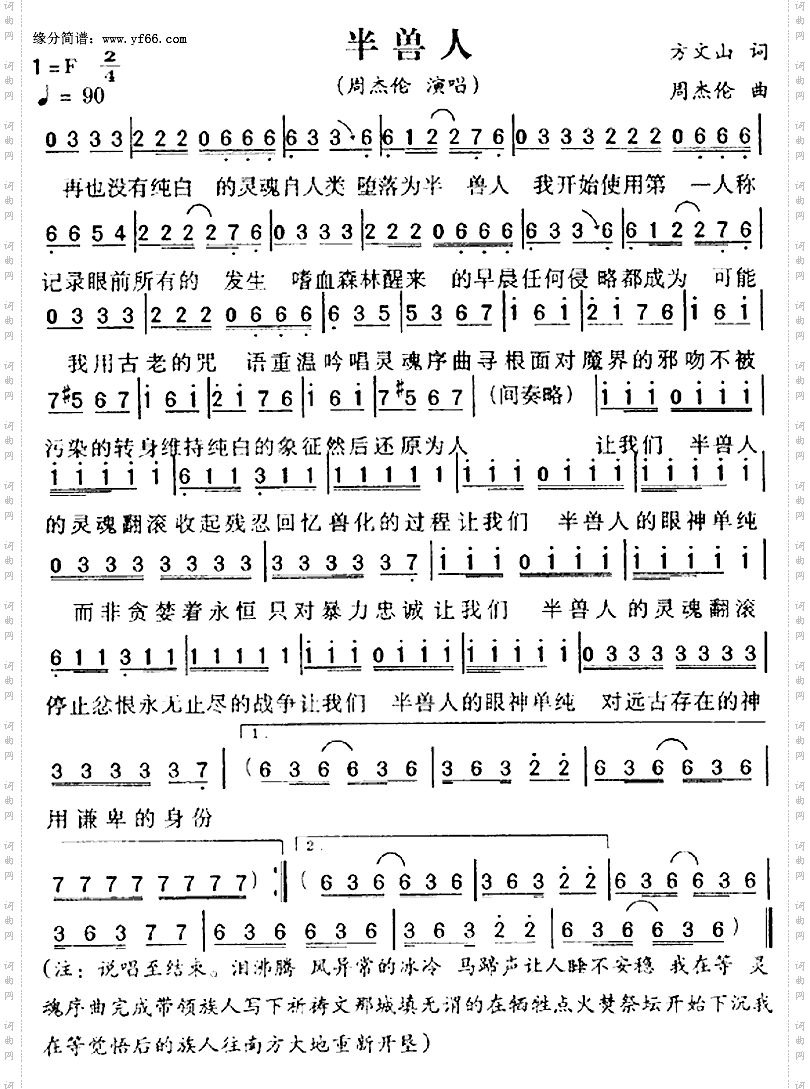 缘分简谱：www.yf66.com
半兽人
1=F 2/4
（周杰伦 演唱）
方文山 词
♩= 90
周杰伦 曲
0 3 3 3 | 2 2 2 0 6 6 6 | 6 3 3 6 | 6 1 2 2 7 6 | 0 3 3 3 2 2 2 0 6 6 6 |
再也没有纯白 的灵魂自人类 堕落为半 兽人 我开始使用第 一人称
6 6 5 4 | 2 2 2 2 7 6 | 0 3 3 3 | 2 2 2 0 6 6 6 | 6 3 3 6 | 6 1 2 2 7 6 |
记录眼前所有的 发生 嗜血森林醒来 的早晨任何侵 略都成为 可能
0 3 3 3 | 2 2 2 0 6 6 6 | 6 3 5 | 5 3 6 7 | i 6 i | 2 i 7 6 | i 6 i |
我用古老的咒 语重温吟唱灵魂序曲寻根面对魔界的邪吻不被
7 #5 6 7 | i 6 i | 2 i 7 6 | i 6 i | 7 #5 6 7 | （间奏略） | i i i | 0 i i i |
污染的转身维持纯白的象征然后还原为人 让我们 半兽人
i i i i i i | 6 1 1 3 1 1 | 1 1 1 1 1 | i i i 0 i i i | i i i i i i |
的灵魂翻滚收起残忍回忆兽化的过程让我们 半兽人的眼神单纯
0 3 3 3 3 3 | 3 3 3 3 3 3 | 3 3 3 3 3 7 | i i i 0 i i i | i i i i i i |
而非贪婪着永恒只对暴力忠诚让我们 半兽人的灵魂翻滚
6 1 1 3 1 1 | 1 1 1 1 1 | i i i 0 i i i | i i i i i i | 0 3 3 3 3 3 3 3 |
停止忿恨永无止尽的战争让我们 半兽人的眼神单纯 对远古存在的神
1.
3 3 3 3 3 7 | （6 3 6 6 3 6 | 3 6 3 2 2 | 6 3 6 6 3 6 |
用谦卑的身份
2.
7 7 7 7 7 7 7 7）:‖（6 3 6 6 3 6 | 3 6 3 2 2 | 6 3 6 6 3 6 |
3 6 3 7 | 6 3 6 6 3 6 | 3 6 3 2 2 | 6 3 6 6 3 6）‖
（注：说唱至结束。泪沸腾 风异常的冰冷 马蹄声让人睡不安稳 我在等 灵
魂序曲完成带领族人写下祈祷文那城填无谓的在牺牲点火焚祭坛开始下沉我
在等觉悟后的族人往南方大地重新开垦）
词曲网